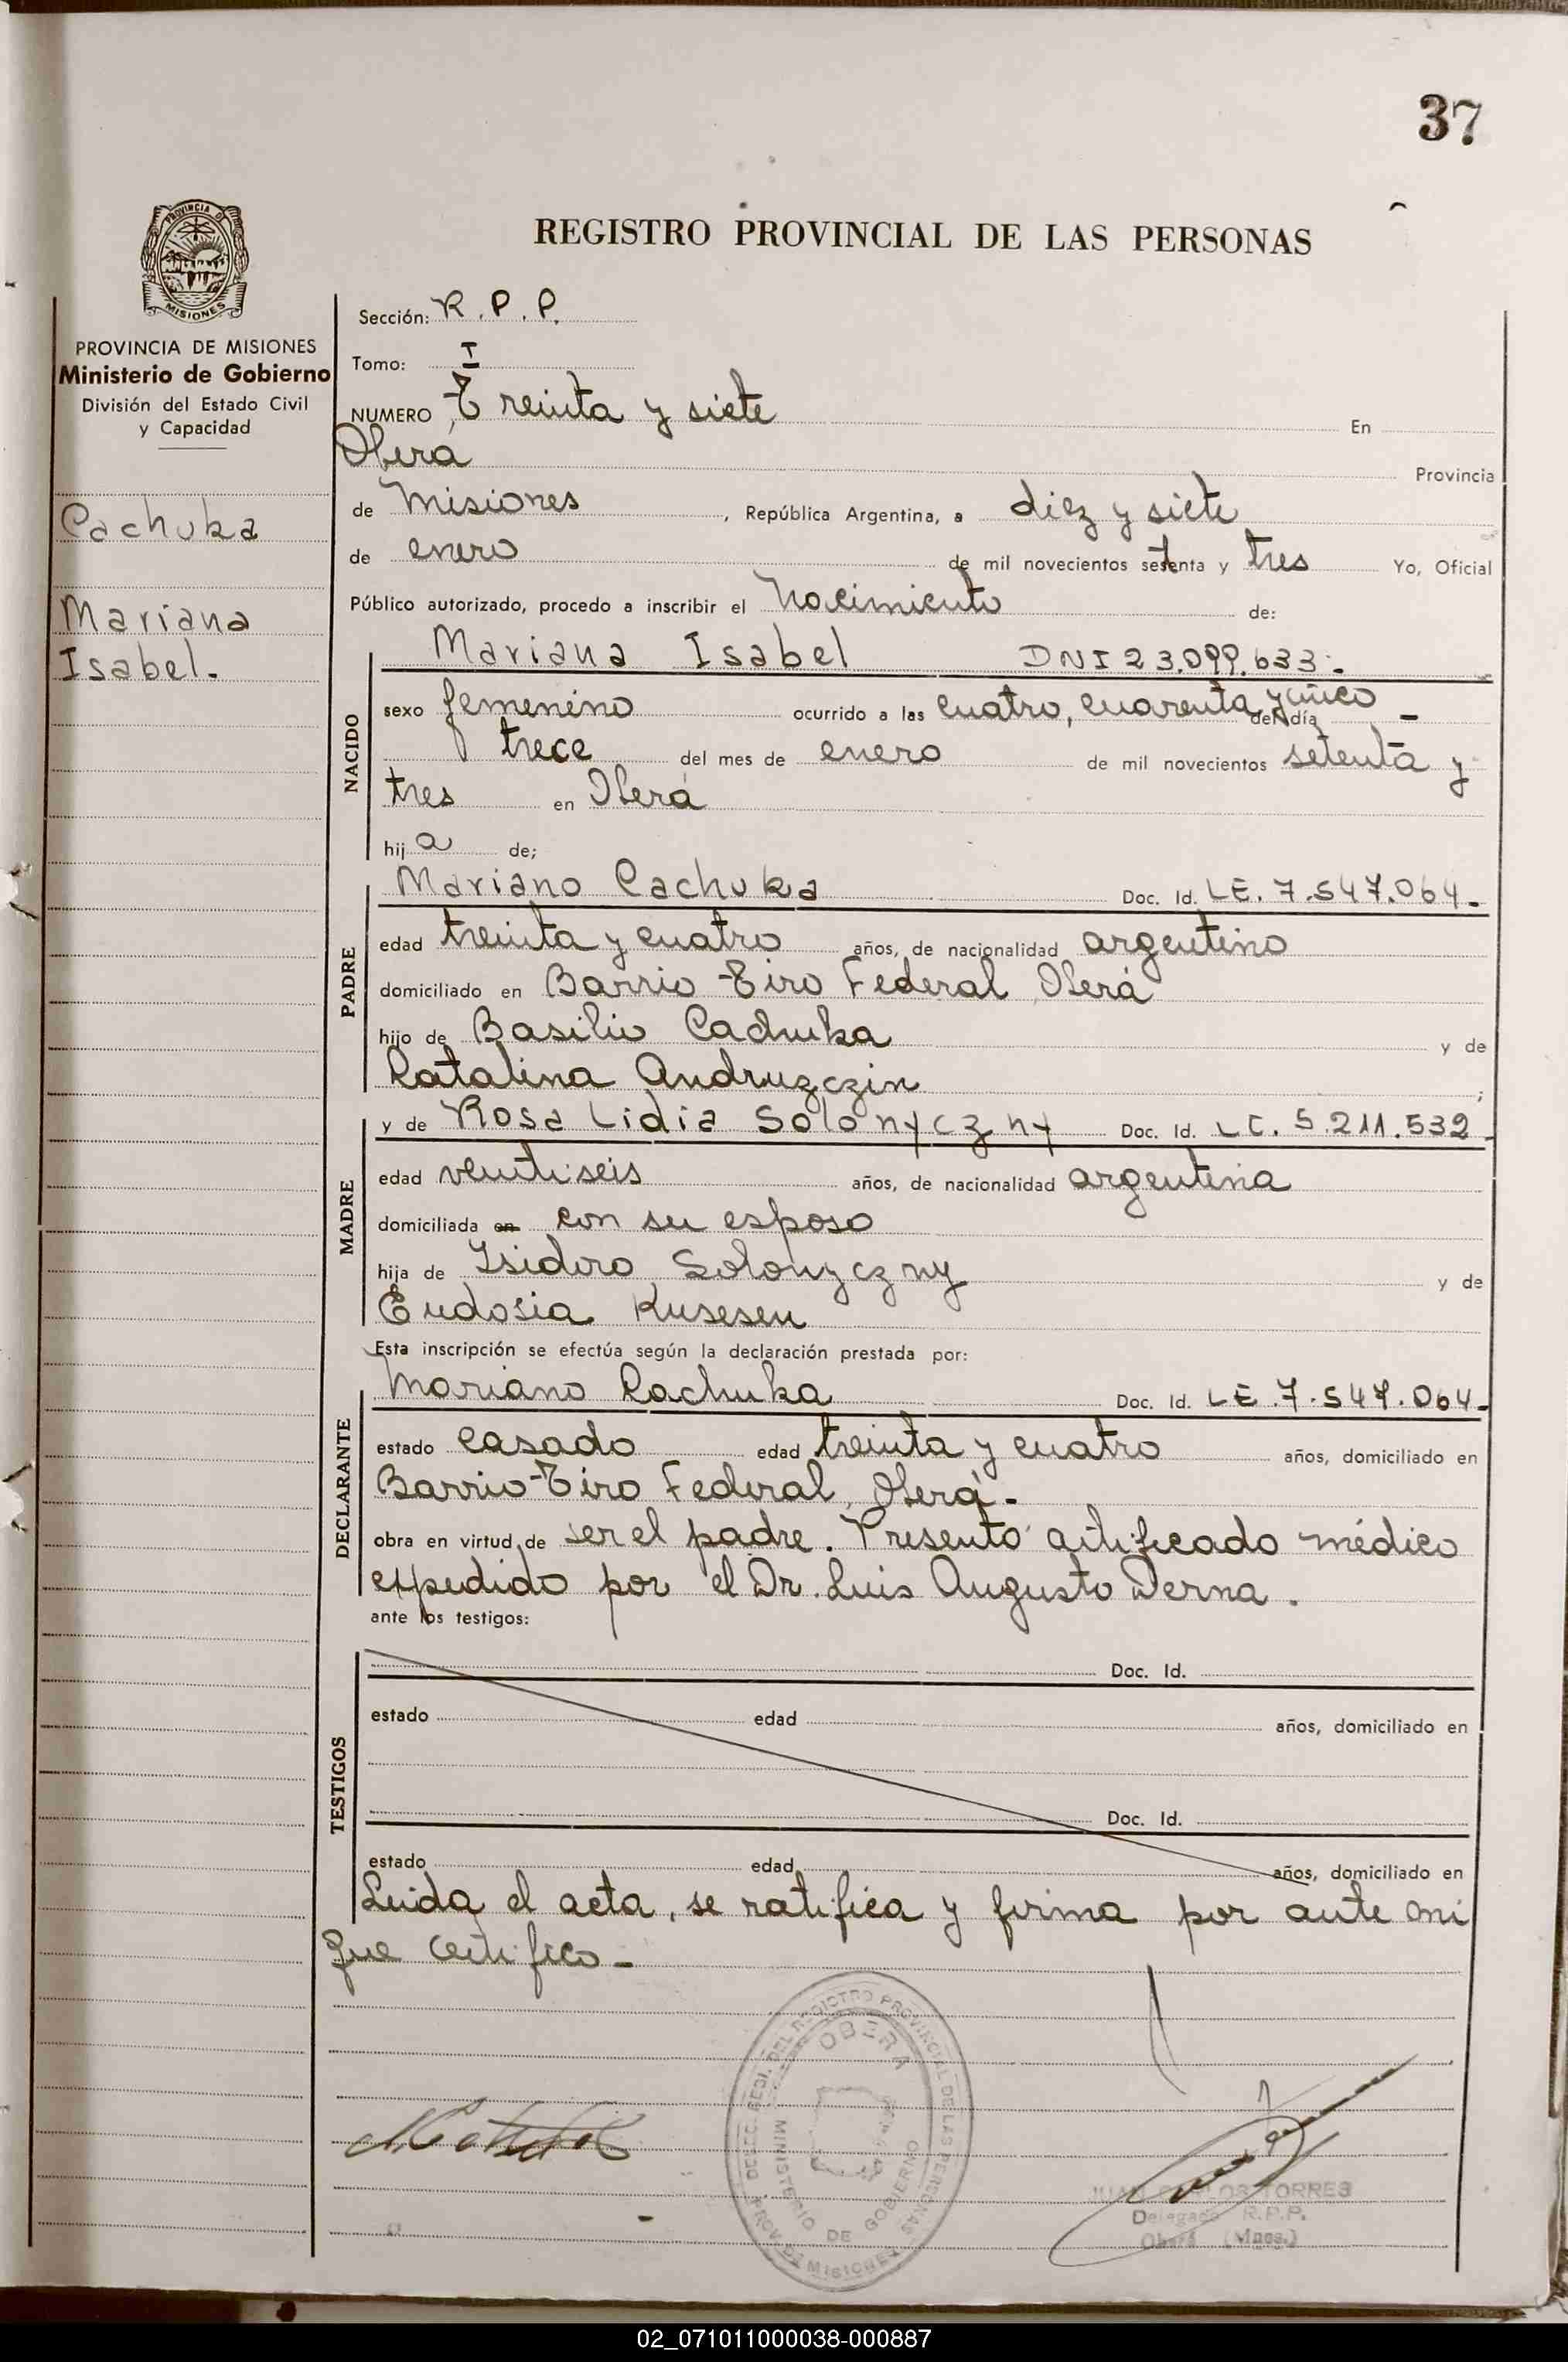 37
REGISTRO PROVINCIAL DE LAS PERSONAS
PROVINCIA DE
MISIONES
PROVINCIA DE MISIONES
Ministerio de Gobierno
División del Estado Civil
y Capacidad
Cachuka
Mariana
Isabel.
Sección: R.P.P.
Tomo: I
NUMERO Treinta y siete En
Oberá Provincia
de Misiones, República Argentina, a diez y siete
de enero de mil novecientos setenta y tres Yo, Oficial
Público autorizado, procedo a inscribir el Nacimiento de:
NACIDO
Mariana Isabel DNI 23.099.633.-
sexo femenino ocurrido a las cuatro, cuarenta y cinco del día -
trece del mes de enero de mil novecientos setenta y
tres en Oberá
hija de;
PADRE
Mariano Cachuka Doc. Id. LE. 7.547.064.-
edad treinta y cuatro años, de nacionalidad argentino
domiciliado en Barrio Tiro Federal Oberá
hijo de Basilio Cachuka y de
Catalina Andruzczin ;
MADRE
y de Rosa Lidia Solonyczny Doc. Id. LC. 5.211.532.
edad veintiseis años, de nacionalidad argentina
domiciliada en con su esposo
hija de Isidoro Solonyczny y de
Eudosia Kusesen
Esta inscripción se efectúa según la declaración prestada por:
DECLARANTE
Mariano Cachuka Doc. Id. LE. 7.547.064-
estado casado edad treinta y cuatro años, domiciliado en
Barrio Tiro Federal, Oberá.-
obra en virtud de ser el padre. Presentó certificado médico
expedido por el Dr. Luis Augusto Derna.
ante los testigos:
TESTIGOS
Doc. Id.
estado edad años, domiciliado en
Doc. Id.
estado edad años, domiciliado en
Leida el acta, se ratifica y firma por ante mi
que certifico.-
DEL REGISTRO PROVINCIAL DE LAS PERSONAS
OBERA
MINISTERIO DE GOBIERNO
PROV. DE MISIONES
JUAN CARLOS TORRES
Delegado R.P.P.
Oberá (Mnes.)
02_071011000038-000887